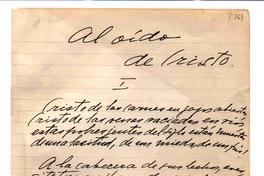 (76)
Al oído
de Cristo.
I
Cristo de las carnes en gajos abiertas,
Cristo de las venas vaciadas en ríos,
estas pobres gentes del siglo están muertas
de una laxitud, de un miedo, de un frío!
A la cabecera de sus lechos, eres